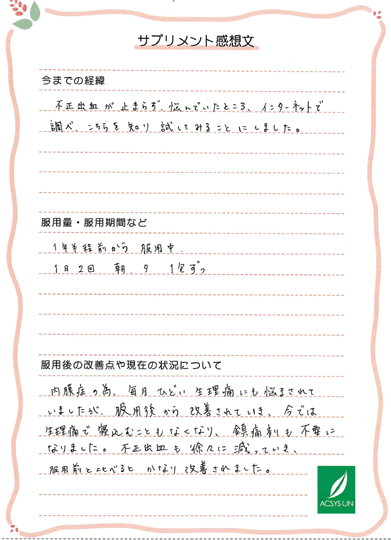 サプリメント感想文
今までの経緯
不正出血が止まらず、悩んでいたところ、インターネットで
調べ、こちらを知り試してみることにしました。
服用量・服用期間など
1年半程前から服用中.
1日2回 朝、夕 1包ずつ
服用後の改善点や現在の状況について
内膜症の為、毎月ひどい生理痛にも悩まされて
いましたが、服用後から改善されていき、今では
生理痛で寝込むこともなくなり、鎮痛剤も不要に
なりました。不正出血も徐々に減っていき、
服用前と比べるとかなり改善されました。
ACSYS UN